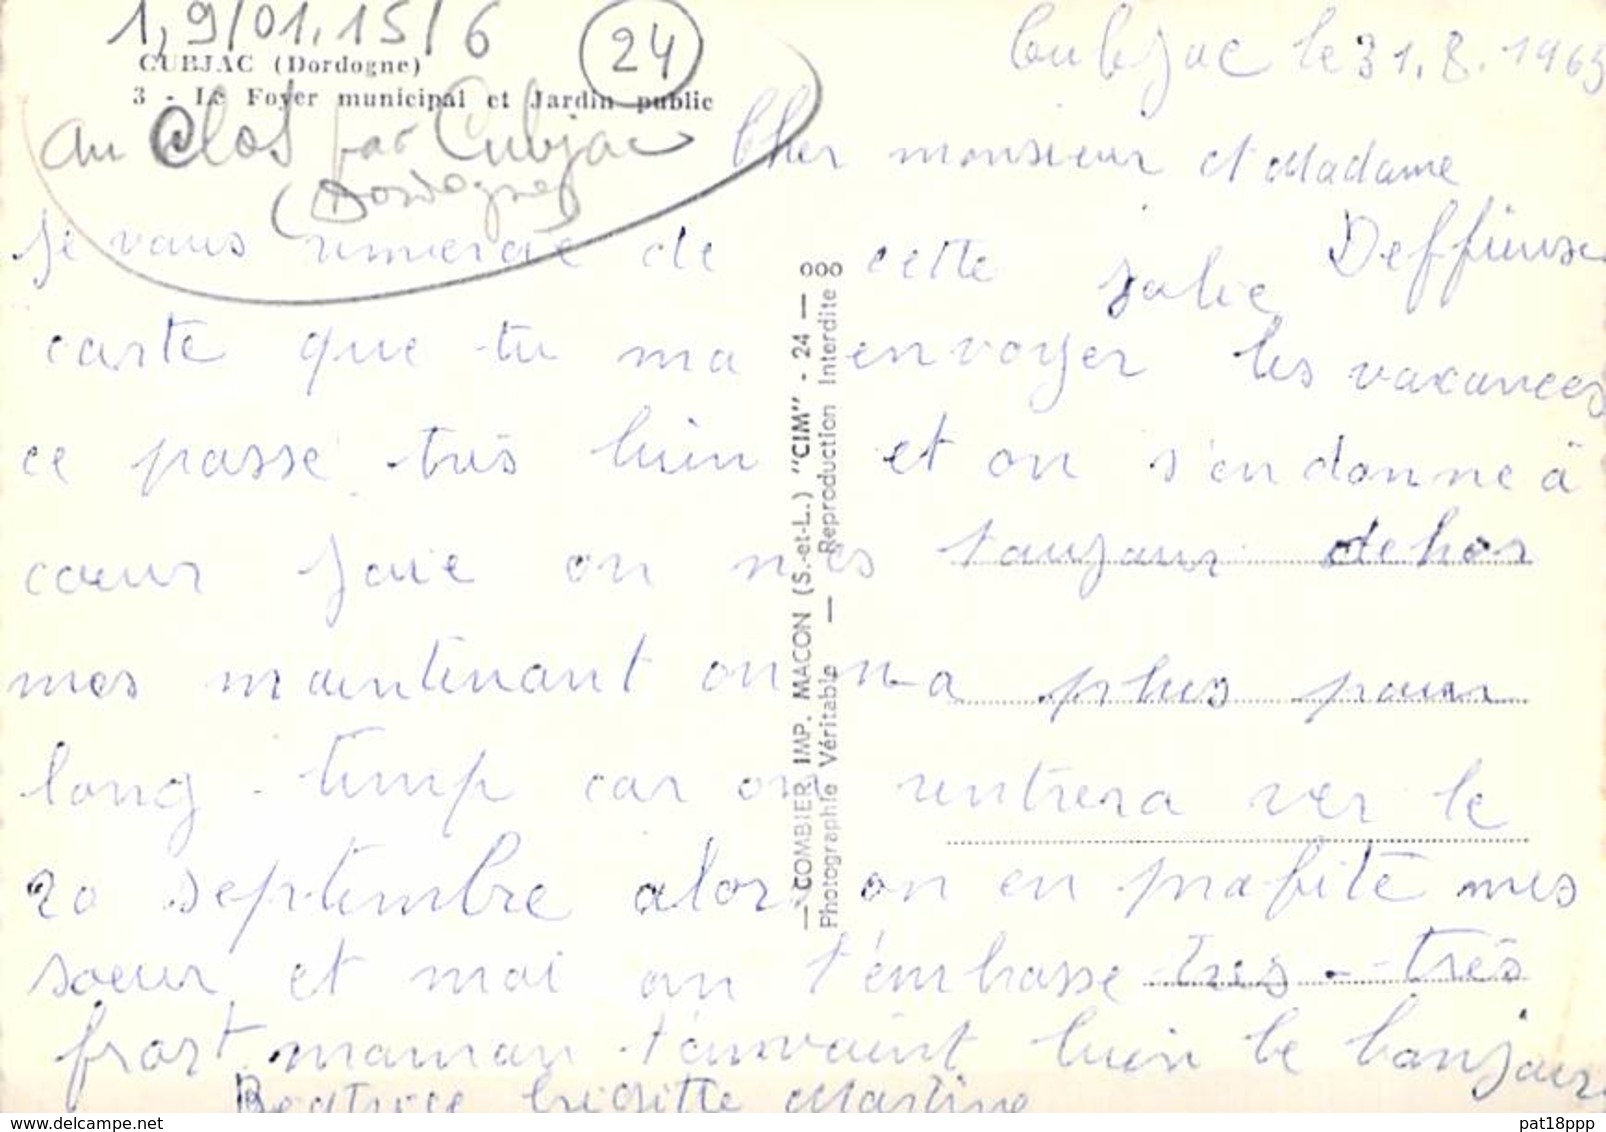 1,9/01.15/6
24
CUBJAC (Dordogne)
3 - Le Foyer municipal et Jardin public
au Clos par Cubjac
(Dordogne)
Cubjac le 31.8.1965
Cher monsieur et Madame
Deffieuse
je vous remercie de cette jolie
carte que tu ma envoyer les vacances
ce passe très bien et on s'en donne à
cœur joie on nes toujour dehor
mes maintenant on n-a plus pour
long-temp car on rentrera ver le
20 septembre alor on en profite mes
soeur et moi on t'embrasse tres-très
fort maman t'envoient bien le bonjour
Béatrice brigitte Martine
— COMBIER IMP. MACON (S.-et-L.) "CIM" - 24 — 000
Photographie Véritable — Reproduction Interdite
pat18ppp